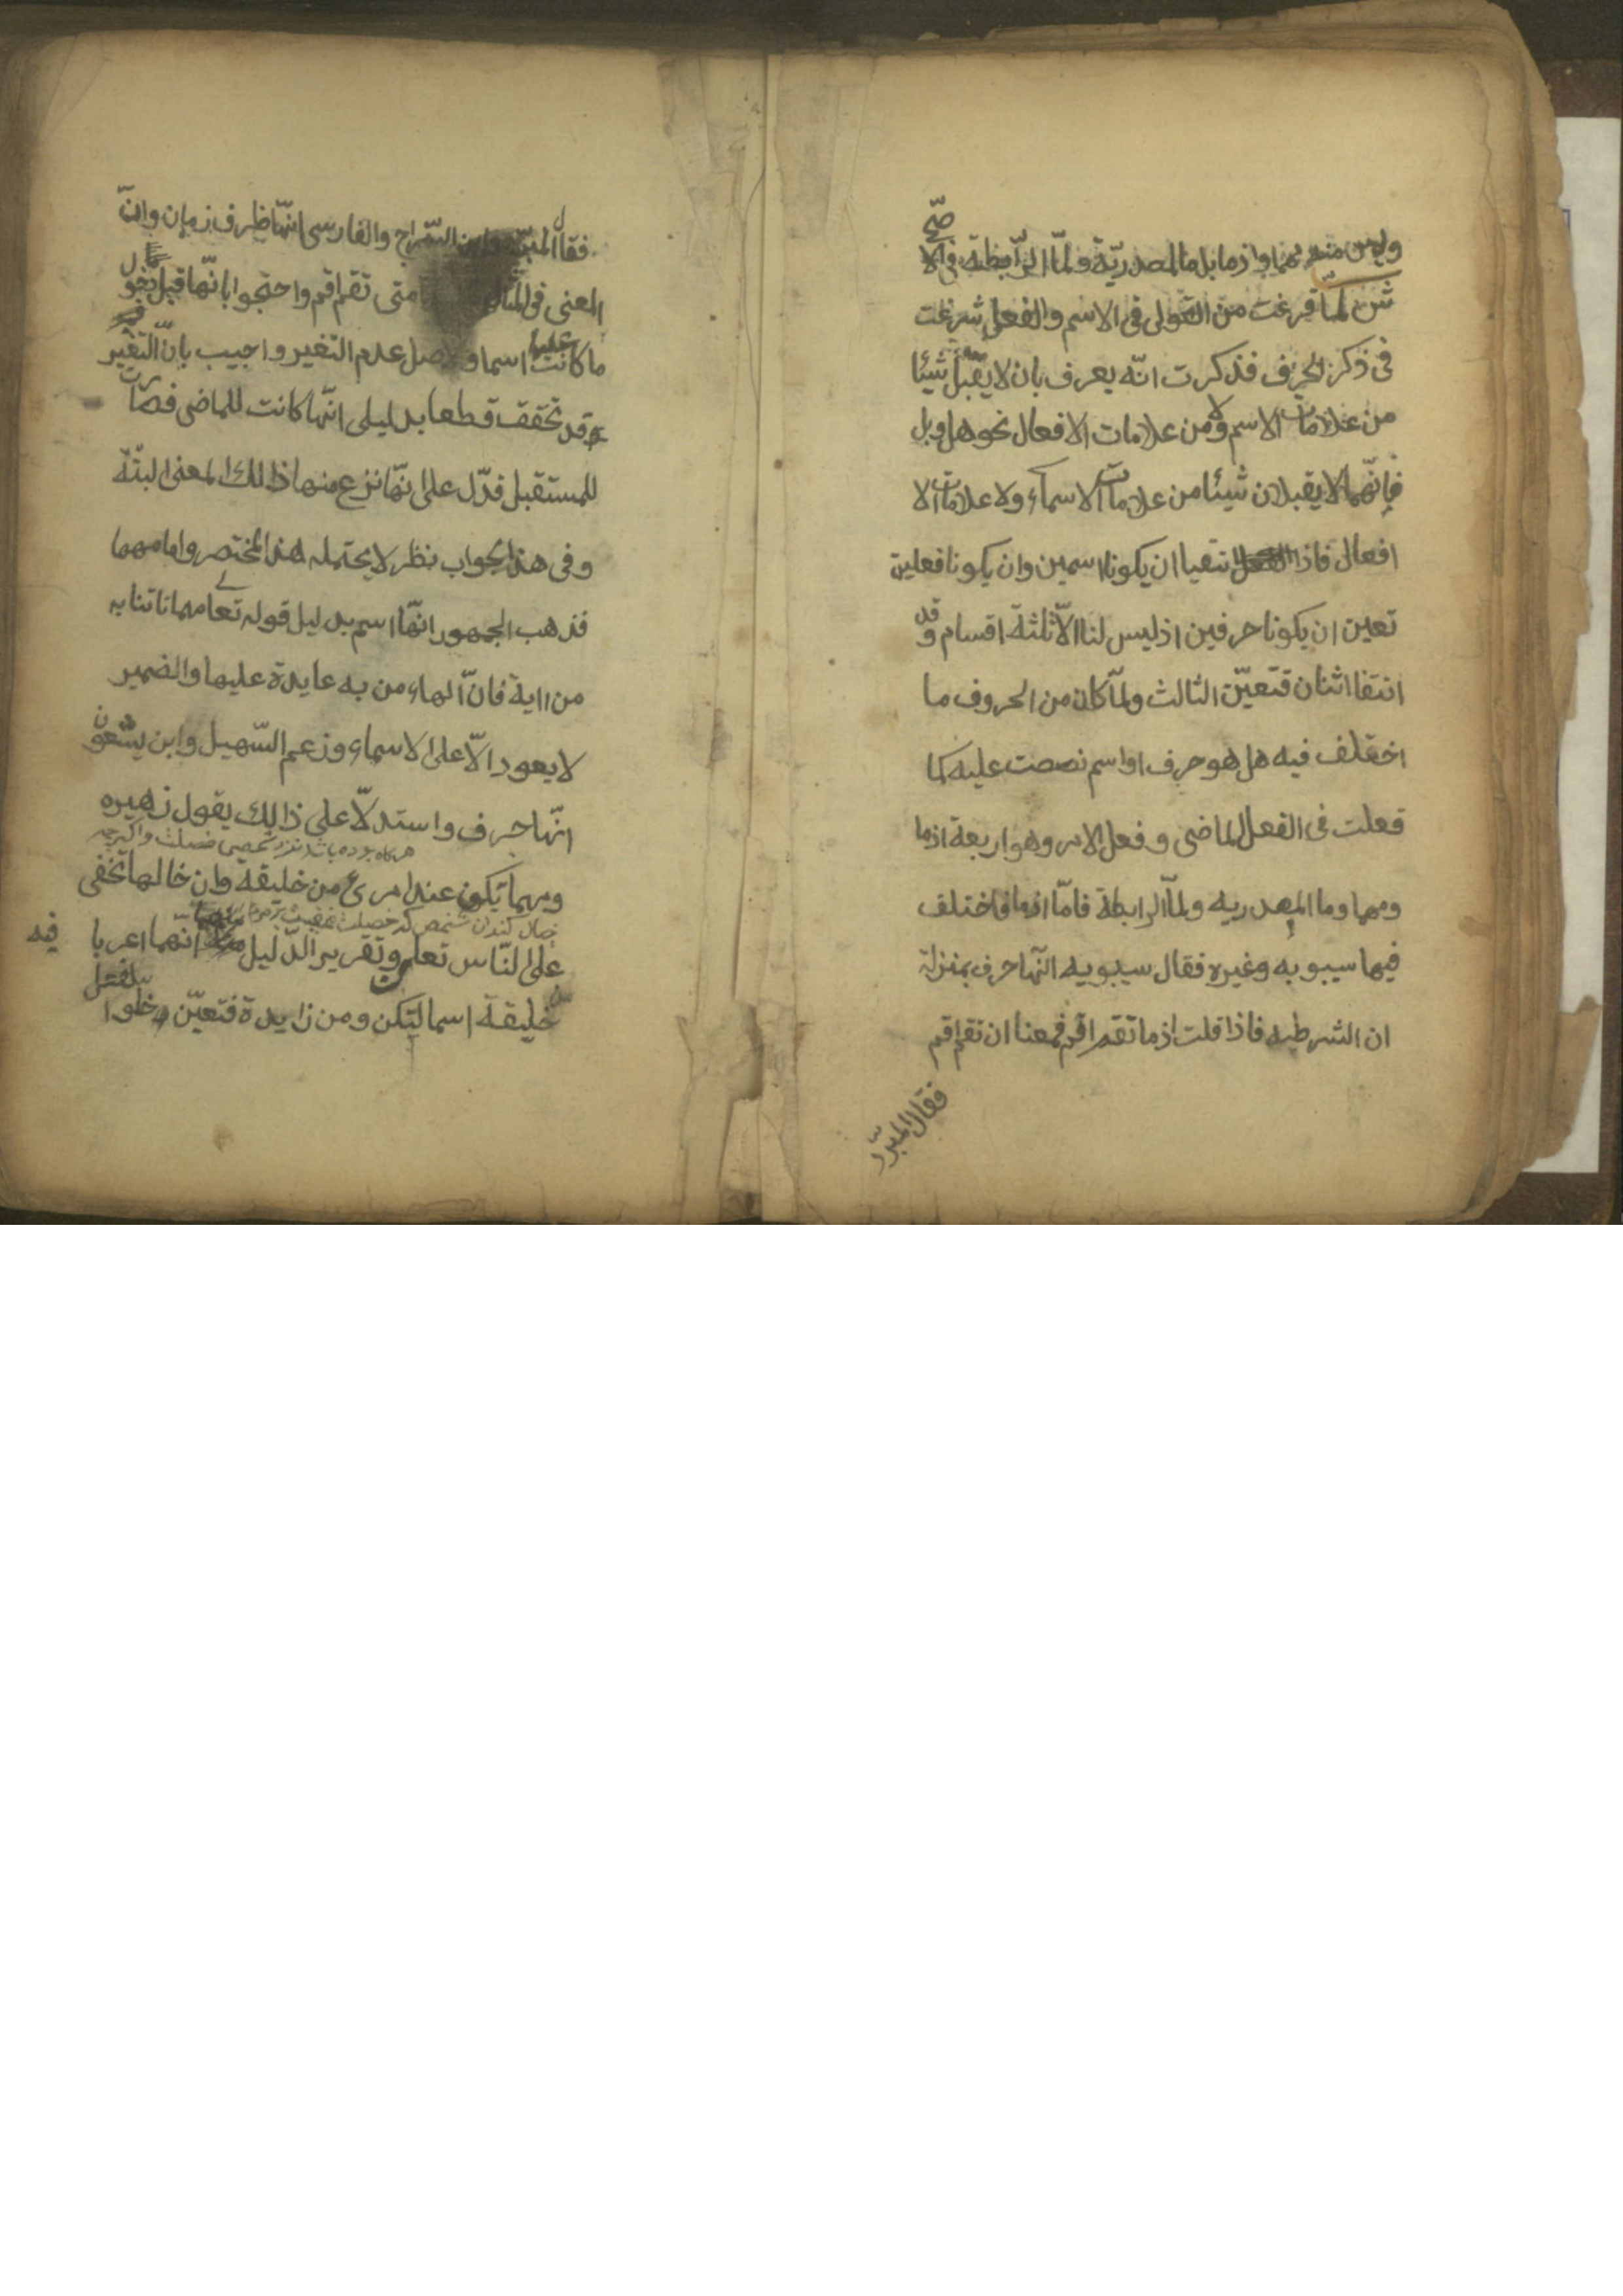 وليس منه مهما واذ ما بل ما المصدريّة ولمّا الرّابطة فى الا
صحّ
ش لمّا فرغت من القول فى الاسم والفعل شرعت
فى ذكر الحرف فذكرت انّه يعرف بان لا يقبل شيئا
من علامات الاسم ولا من علامات الافعال نحو هل وبل
فانّهما لا يقبلان شيئا من علامات الاسماء ولا علامات الا
افعال فاذا انتفيا ان يكونا اسمين وان يكونا فعلين
تعين ان يكونا حرفين اذ ليس لنا الّا ثلثة اقسام وقد
انتفا اثنان فتعيّن الثالث ولمّا كان من الحروف ما
اختلف فيه هل هو حرف او اسم نصصت عليه كما
فعلت فى الفعل الماضى وفعل الامر وهو اربعة اذما
ومهما وما المصدريه ولمّا الرابطة فامّا اذما فاختلف
فيها سيبويه وغيره فقال سيبويه انّها حرف بمنزلة
ان الشرطيه فاذا قلت اذما تقم اقم فمعنا ان تقم اقم
فقال المبرّد
فقال المبرّد وابن السّراج والفارسى انّها ظرف زمان وانّ
المعنى فى المثال متى تقم اقم واحتجوا بانّها قبل دخول
ما كانت اسما والاصل عدم التغير واجيب بانّ التغير
عليها
قد تحقق قطعا بدليل انّها كانت للماضى فصارت
للمستقبل فدّل على انّها نزع منها ذالك المعنى البتّة
وفى هذا الجواب نظر لا يحتمله هذا المختصر واما مهما
فذهب الجمهور انّها اسم بدليل قوله تعالى مهما تاتنا به
من اية فانّ الهاء من به عايدة عليها والضمير
لا يعود الّا على الاسماء وزعم السّهيل وابن يسّعون
انّها حرف واستدلّا على ذالك بقول زهيره
ومهما تكون عند امرئ من خليقة وان خالها تخفى
على النّاس تعلم وتقرير الدّليل انّهما اعربا
فيه
خليقة اسما لتكن ومن زايدة فتعيّن خلوا
الفعل